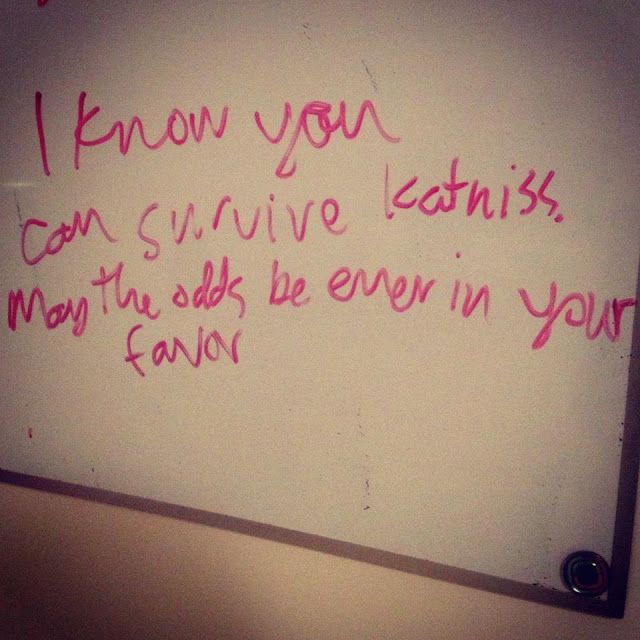 I know you
can survive katniss.
May the odds be ever in your
favor